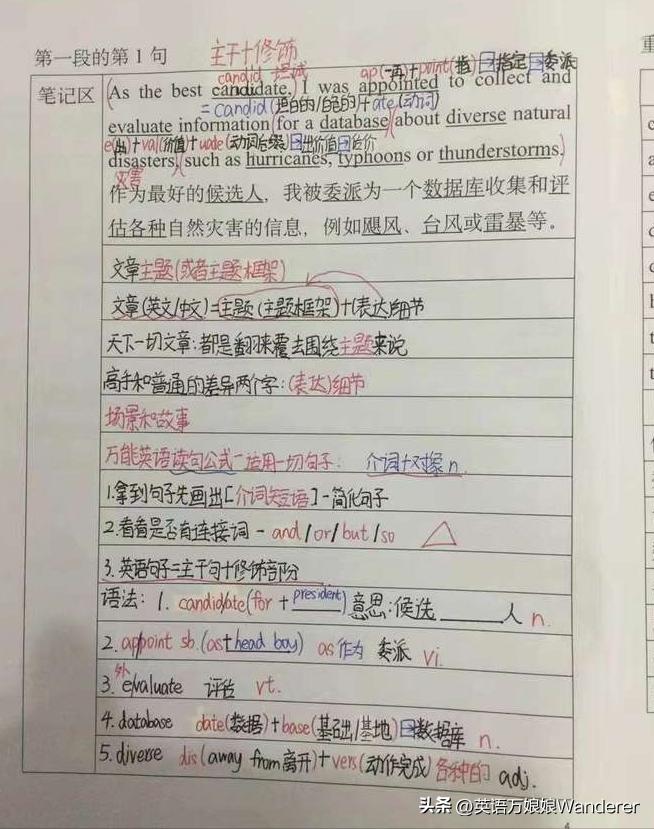 第一段的第1句 主干+修饰
candid 坦诚 ap(一再)+point(指)→指定→委派
笔记区
As the best candidate, I was appointed to collect and
=candid(坦白的/白色的)+ate(动词)
evaluate information for a database about diverse natural
e(出)+val(价值)+uate(动词后缀)→出价值→估价
disasters, such as hurricanes, typhoons or thunderstorms.
灾害
作为最好的候选人，我被委派为一个数据库收集和评
估各种自然灾害的信息，例如飓风、台风或雷暴等。
文章主题(或者主题框架)
文章(英文/中文)=主题(主题框架)+(表达)细节
天下一切文章:都是翻来覆去围绕主题来说
高手和普通的差异两个字:(表达)细节
场景和故事
万能英语读句公式-运用一切句子: 介词+对象n.
1.拿到句子先画出[介词短语]-简化句子
2.看看是否有连接词-and/or/but/so
3.英语句子=主干句+修饰部分
语法: 1. candidate(for + president)意思:候选______人 n.
2. appoint sb.(as+head boy) as作为 委派 vi.
外
3. evaluate 评估 vt.
4. database date(数据)+base(基础/基地)→数据库 n.
5. diverse dis(away from离开)+vers(动作完成)各种的 adj.
重
头条 @英语万娘娘Wanderer